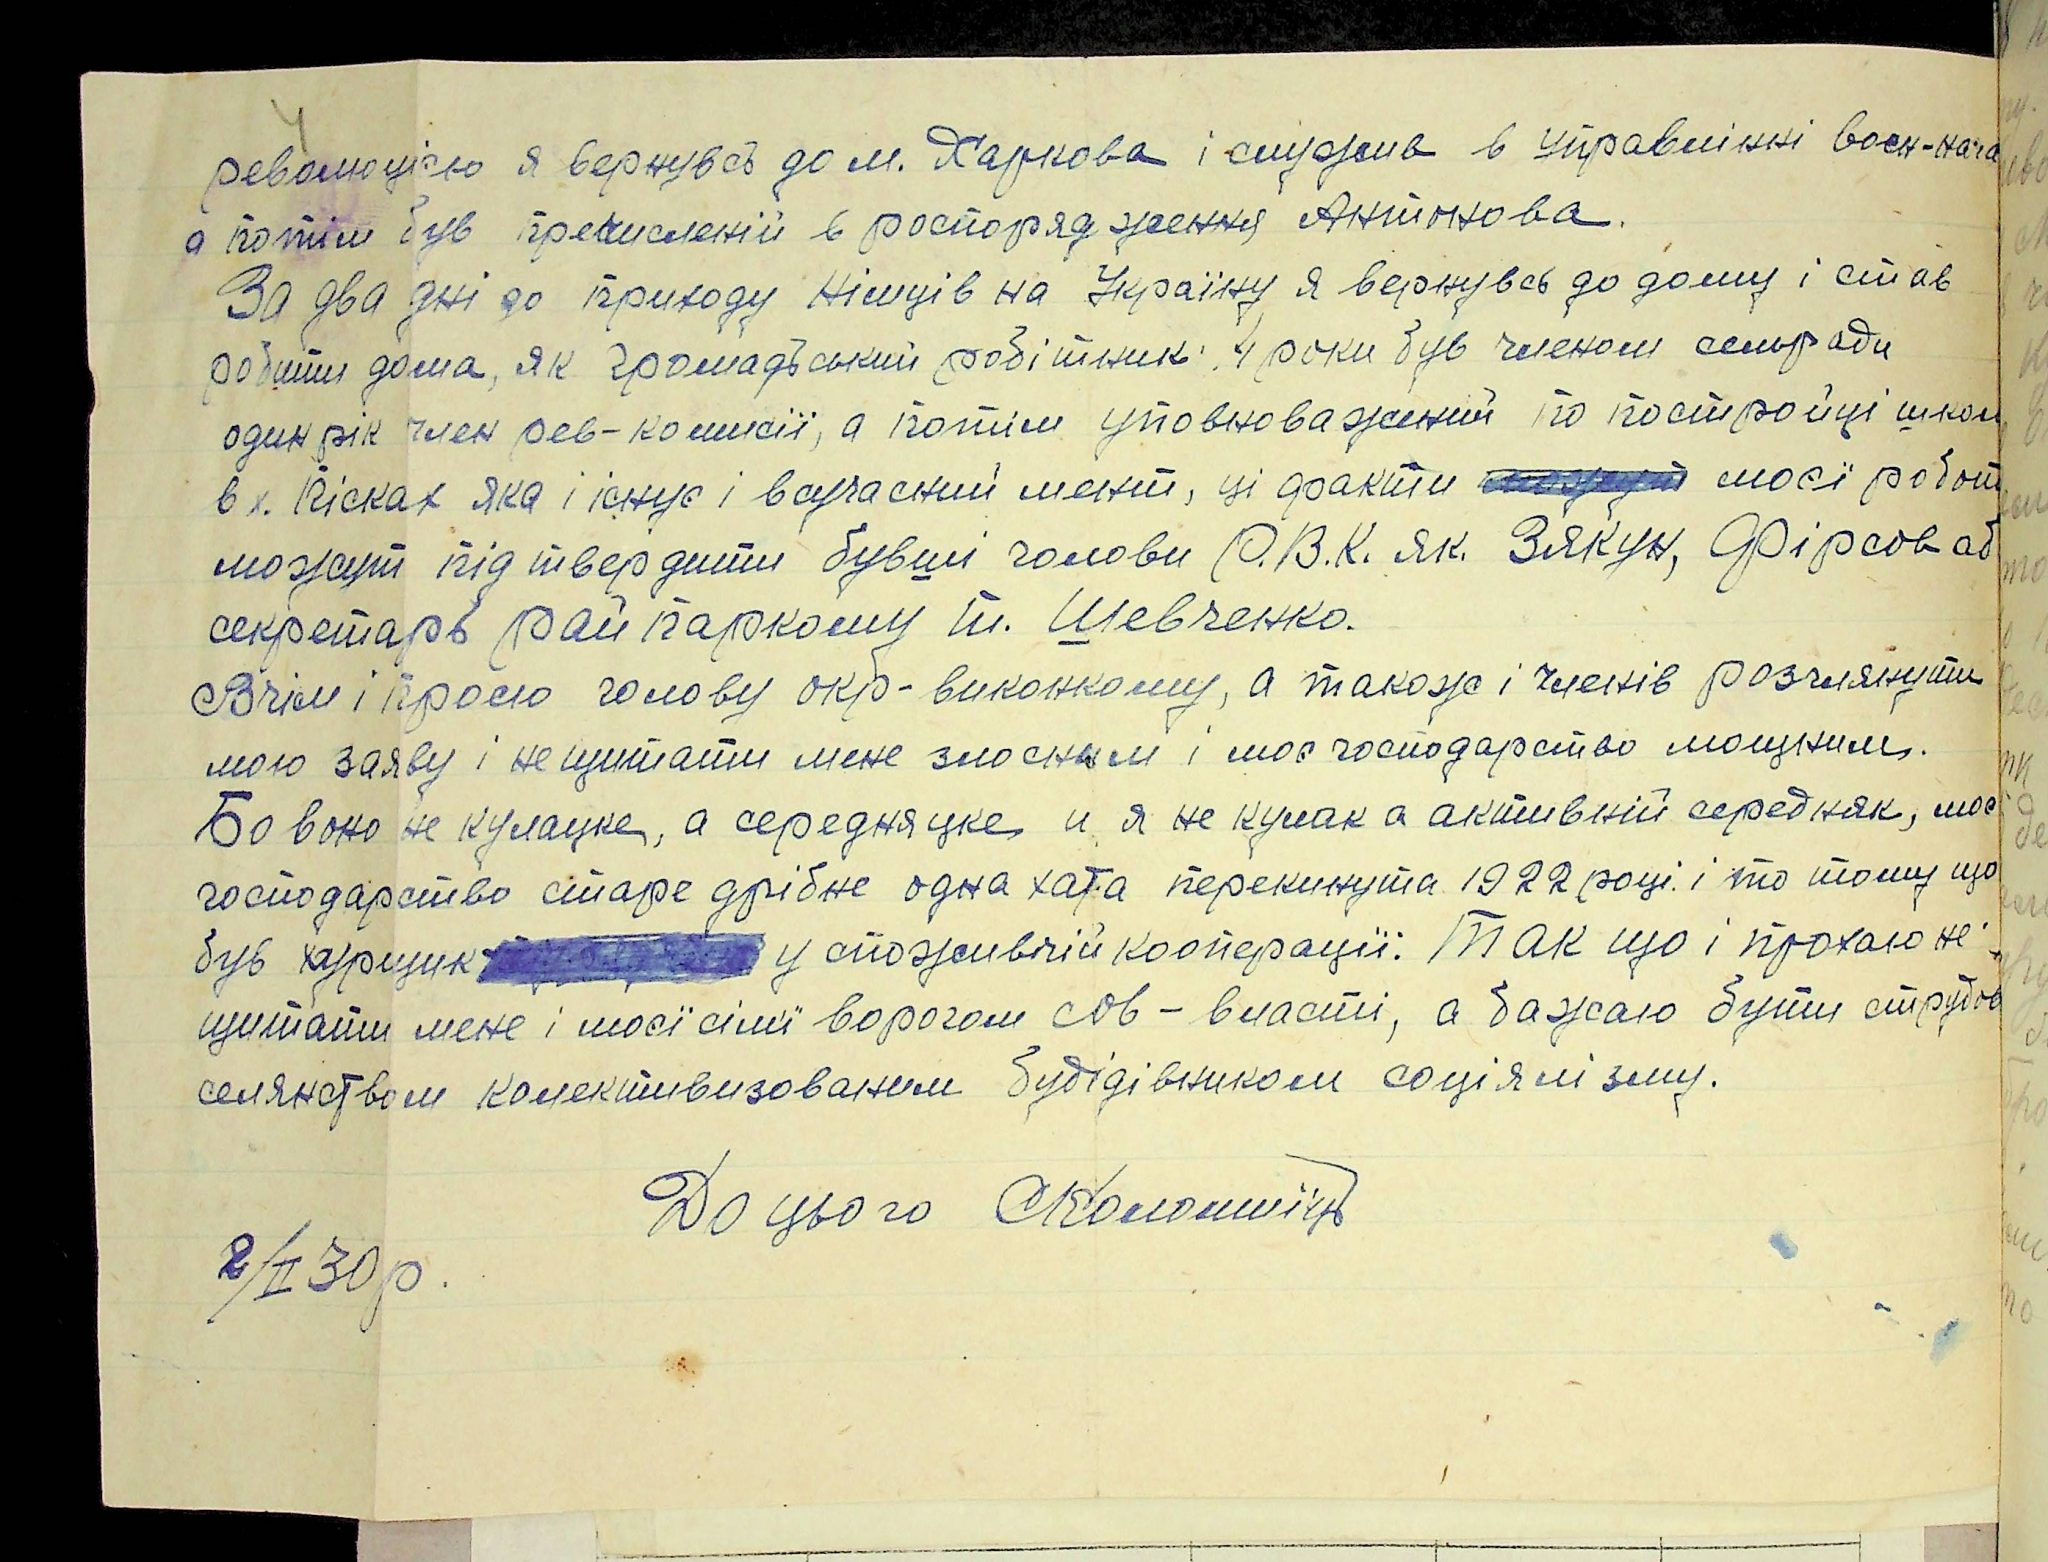 4
революцією я вернувсь до м. Харкова і служив в управлінні воєн-нача
а потім був пречислений в роспорядження Антонова.
За два дні до приходу німців на Україну я вернувсь до дому і став
робити дома, як громадьський робітник. 4 роки був членом сельради
один рік член рев-комисії, а потім уповноважений по постройці школ
в х. Пісках яка і існує і всучасний мент, ці факти моєї робот
можут підтвердити бувші голови Р.В.К. як. Зякун, Фірсов аб
секретарь райпаркому т. Шевченко.
Вчім і просю голову окр-виконкому, а також і членів розглянути
мою заяву і не щитати мене злосним і моє господарство мощним.
Бо воно не кулацке, а середняцке и я не кулак а активній середняк, моє
господарство старе дрібне одна хата перекинута 1922 році. і то тому що
був хурщик у споживчій кооперації. Так що і прохаю не
щитати мене і моєї сімї ворогом сов-власті, а бажаю бутиструдов
селянством колективизованим будідівником соціялізму.
До цього СКоломиїць
2/II 30 р.